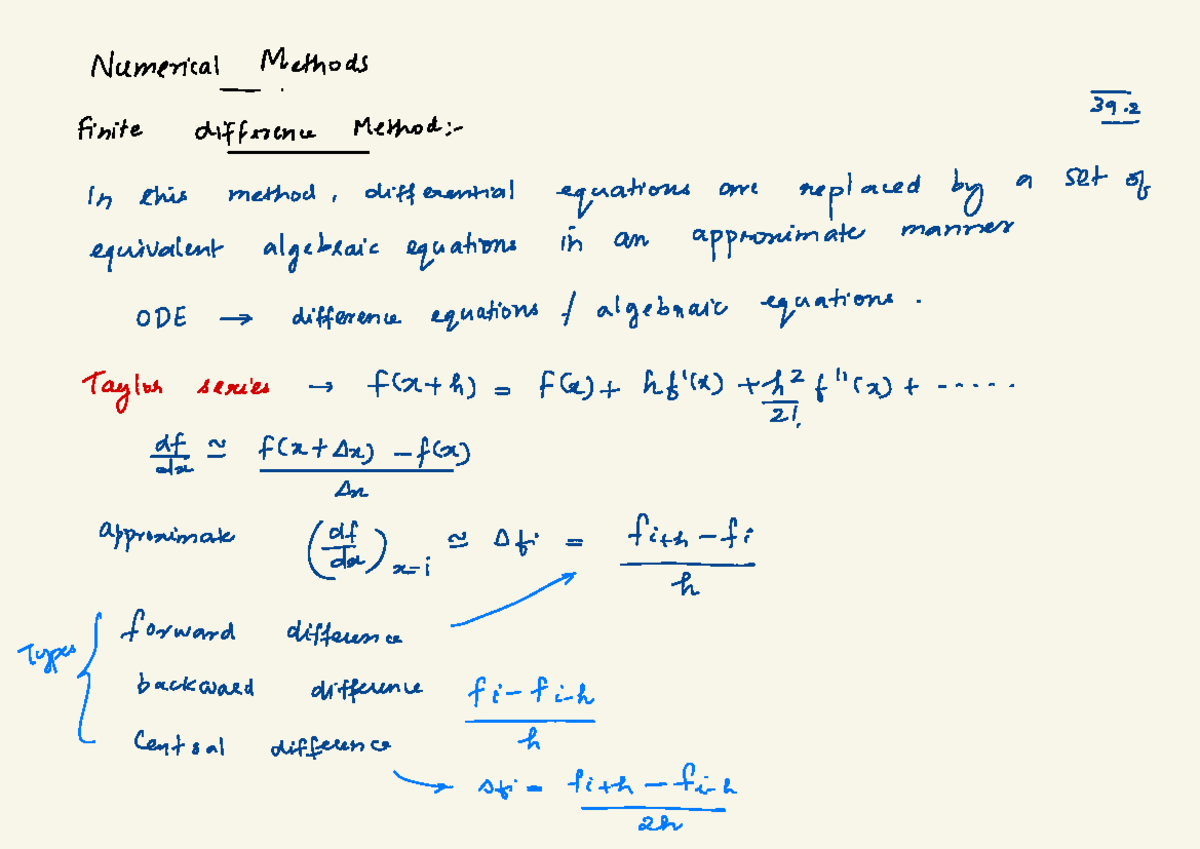 Numerical Methods
39.2
Finite difference Method:-
In this method, differential equations are replaced by a set of
equivalent algebraic equations in an approximate manner
ODE → difference equations / algebraic equations.
Taylor series → f(x+h) = f(x) + hf'(x) + h²/2! f''(x) + .....
df/dx ≃ f(x+Δx) - f(x) / Δx
approximate (df/dx)x=i ≃ Δfi = fi+h - fi / h
Types { forward difference
backward difference fi - fi-h / h
Central difference
→ Δfi = fi+h - fi-h / 2h